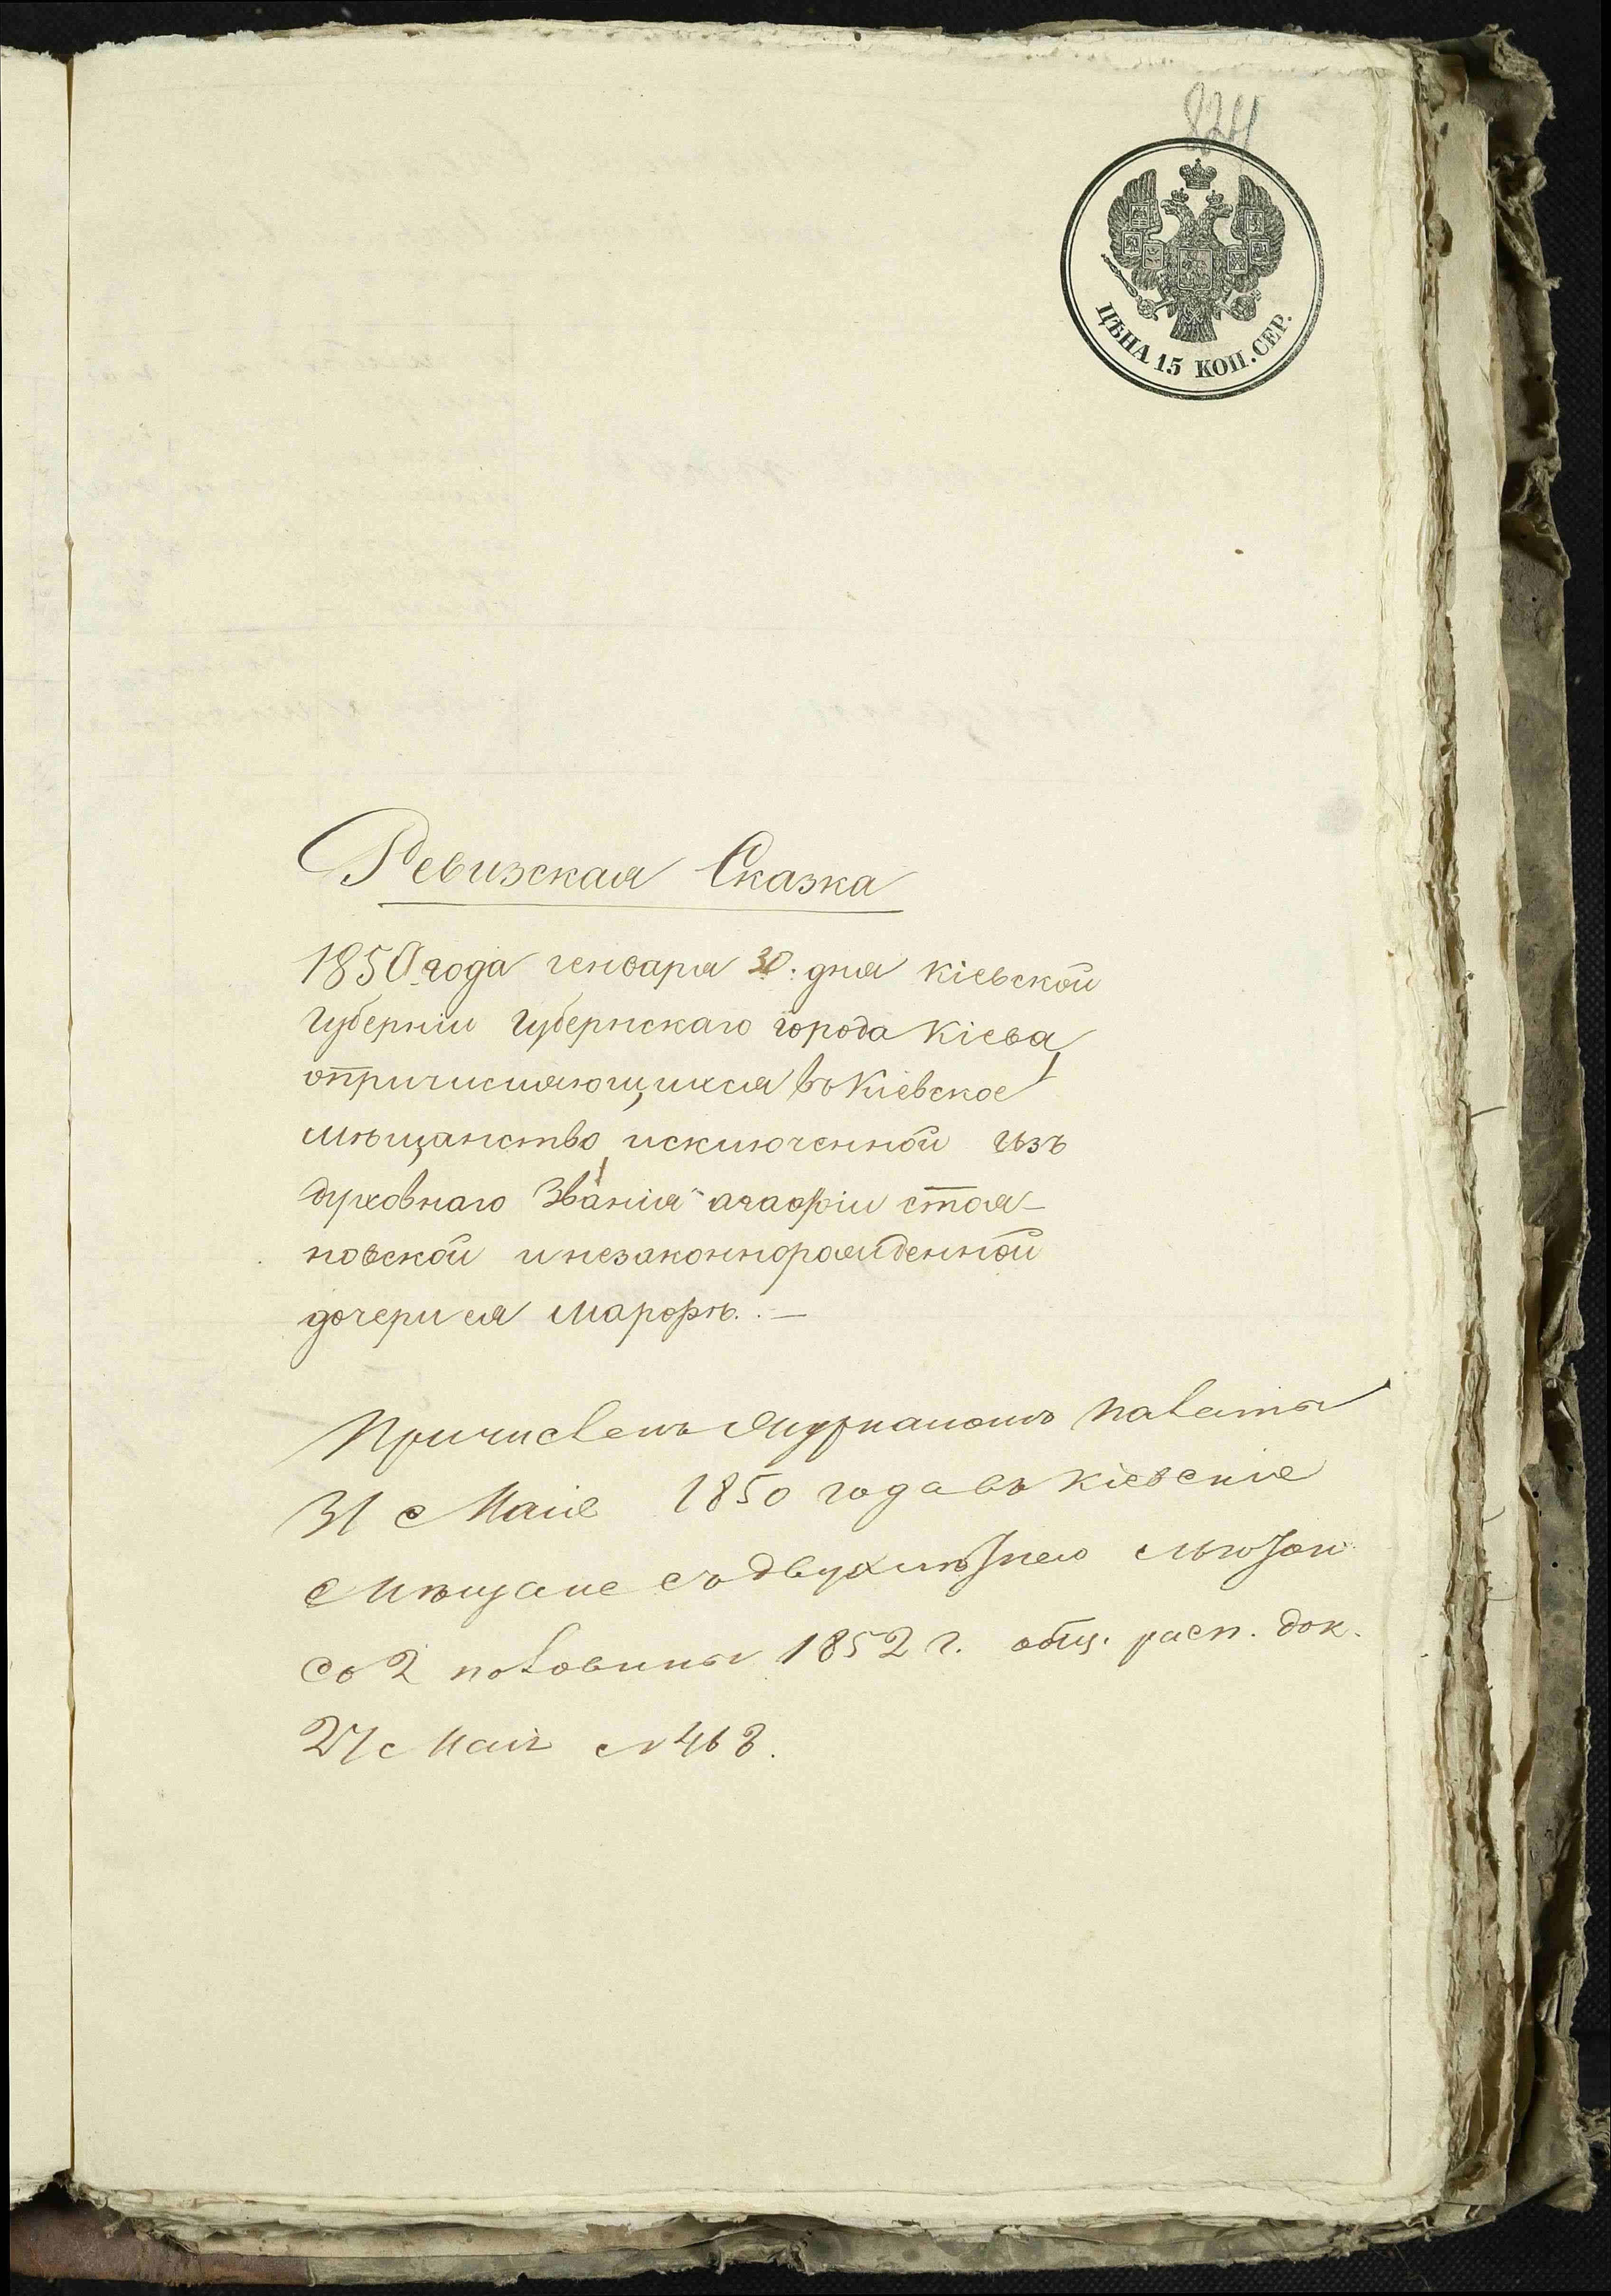 824
ЦѢНА 15 КОП. СЕР.
Ревизская Сказка
1850 года генваря 30. дня Кіевской
Губерніи Губернскаго города Кіева,
опричисляющихся въ Кіевское
мѣщанство, исключенной изъ
духовнаго званія агафіи стоя-
новской и незаконнорожденной
дочери ея Марфѣ. —
Причислена Журналомъ палаты
31 Маія 1850 года въ Кіевскіе
Мѣщане съ двухлѣтнею льготою
со 2 половины 1852 г. общ. расп. док.
27 Маія № 463.